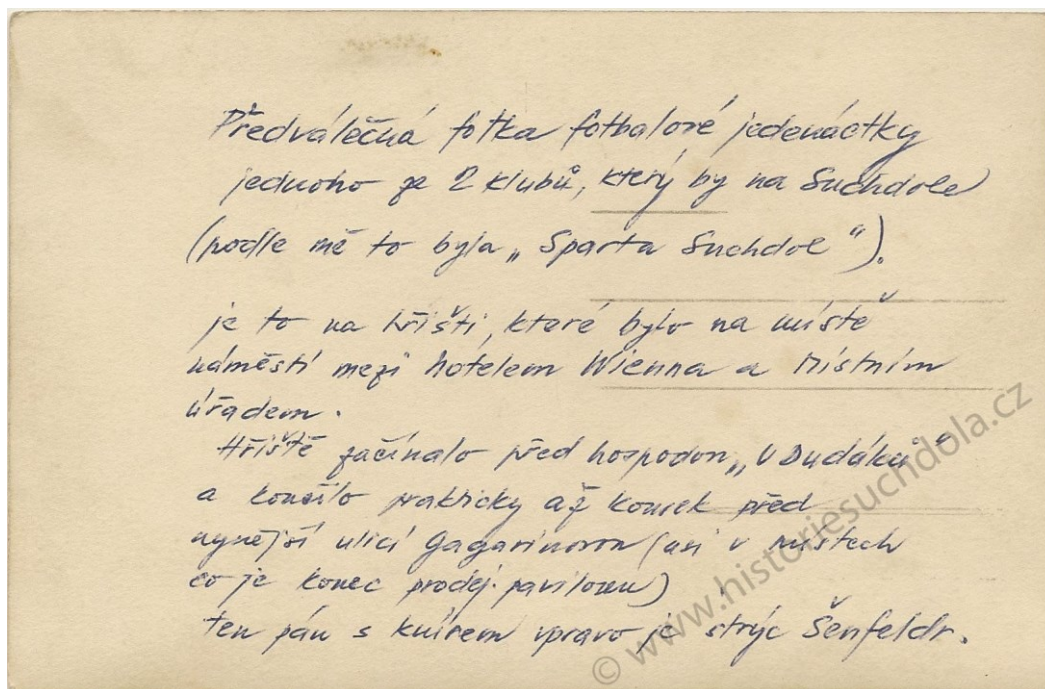 Předválečná fotka fotbalové jedenáctky
jednoho ze 2 klubů, který by na Suchdole
(podle mě to byla „Sparta Suchdol“).
je to na hřišti, které bylo na místě
náměstí mezi hotelem Wienna a Místním
úřadem.
Hřiště začínalo před hospodou „U Dudáků“
a končilo prakticky až kousek před
nynější ulicí Gagarinovou (asi v místech
co je konec prodej. pavilonu)
ten pán s knírem vpravo je strýc Šenfeldr.
© www.historiesuchdola.cz